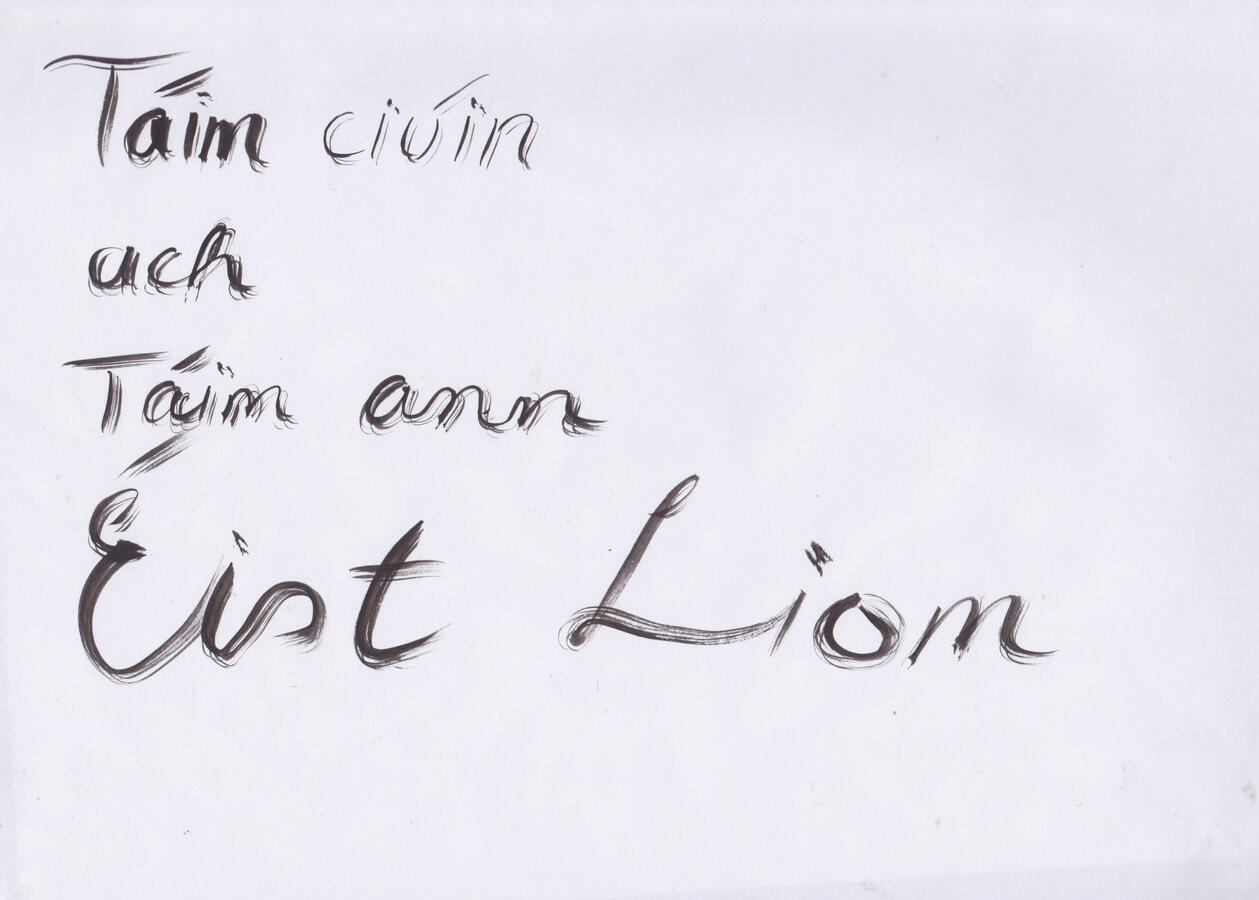 Táim ciúin
ach
Táim ann
Éist Liom